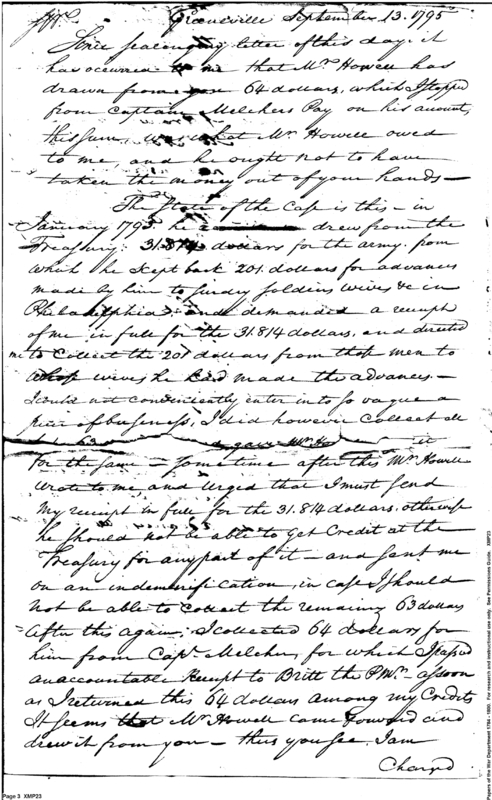 Greeneville September 13. 1795
Since sealing my letter of this day it
has occurred to me that Mr. Howell has
drawn from you 64 dollars, which I stopped
from Captain Melchers Pay on his account,
this sum, was what Mr. Howell owed
to me, and he ought not to have
taken the money out of your hands —
The State of the Case is this — in
January 1795 he drew from the
Treasury. 31.814 dollars for the army. from
which he kept back 201. dollars for advances
made by him to sundry soldiers wives &c in
Philadelphia, and demanded a receipt
of me in full for the 31.814 dollars, and directed
me to Collect the 201 dollars from those men to
whose wives he had made the advances. —
I could not conveniently enter into so vague a
piece of business, I did however collect all
63 gave Mr. Ho it
for the same — Some time after this Mr. Howell
wrote to me and Urged that I must send
my receipt in full for the 31.814 dollars, otherwise
he should not be able to get Credit at the
Treasury for any part of it — and sent me
on an indemnification, in case I should
not be able to collect the remaining 63 dollars
After this again, I collected 64 dollars for
him from Capt. Melcher, for which I passed
an accountable Receipt to Britt the P.Mr. as soon
as I returned this 64 dollars among my Credits
It seems that Mr. Howell came forward and
drew it from you — thus you see I am
Charged
Page 3 XMP23
Papers of the War Department 1784 - 1800. For research and instructional use only. See Permissions Guide. XMP23